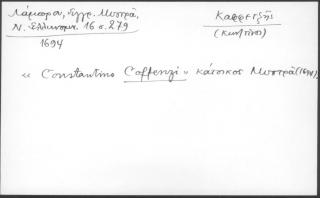 Λάμπρου, Έγγρ. Μυστρᾶ,
Ν. Ἑλληνομν. 16 σ. 279
1694
Καφφετζῆς
(Κων/τῖνος)
« Constantino Caffenzi » κάτοικος Μυστρᾶ (1694).